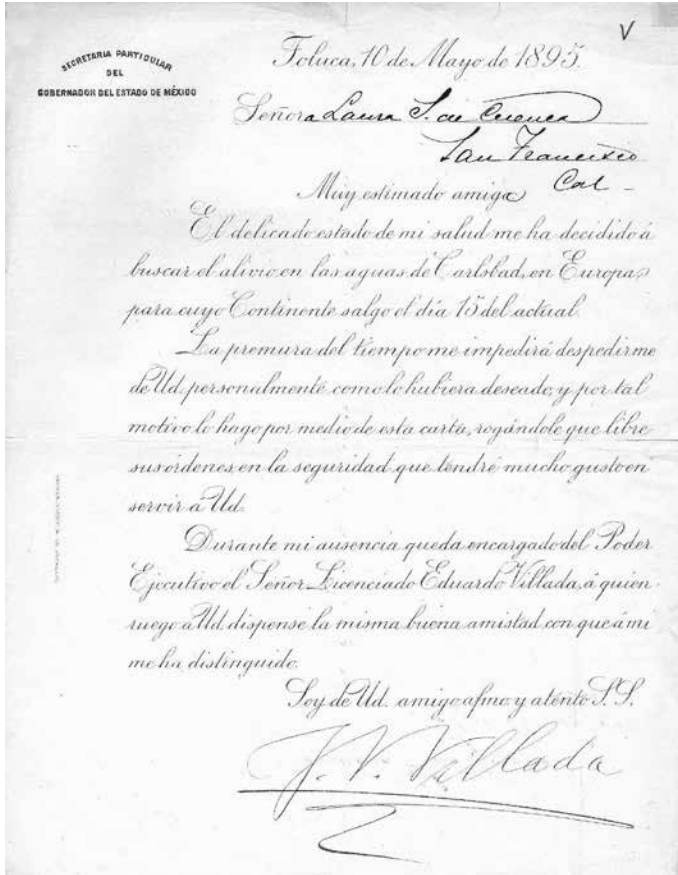 V
SECRETARIA PARTICULAR
DEL
GOBERNADOR DEL ESTADO DE MÉXICO
Toluca, 10 de Mayo de 1895.
Señora Laura S. de Cuenca
San Francisco
Cal -
Muy estimado amiga
El delicado estado de mi salud me ha decidido á
buscar el alivio en las aguas de Carlsbad, en Europa,
para cuyo Continente salgo el día 15 del actual.
La premura del tiempo me impedirá despedirme
de Ud. personalmente como lo hubiera deseado, y por tal
motivo lo hago por medio de esta carta, rogándole que libre
sus órdenes, en la seguridad que tendré mucho gusto en
servir á Ud.
Durante mi ausencia queda encargado del Poder
Ejecutivo el Señor Licenciado Eduardo Villada, á quien
ruego á Ud. dispense la misma buena amistad con que á mi
me ha distinguido.
Soy de Ud. amigo afmo. y atento S. S.
J. V. Villada